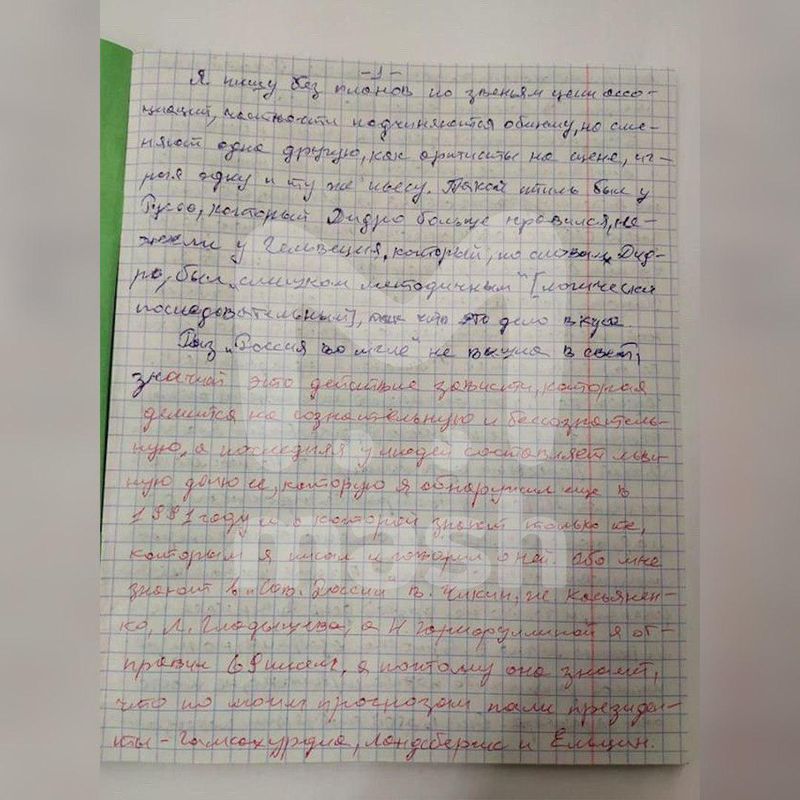 -1-
Я пишу без планов по звеньям цепи ассо-
циаций, частности подчиняются общему, но сме-
няют одна другую, как артисты на сцене, иг-
рая одну и ту же пьесу. Такой стиль был у
Руссо, который Дидро больше нравился, не-
жели у Гельвеция, который, по словам Дид-
ро, был „слишком методичным" [логически
последовательный], так что это дело вкуса.
Раз „Россия во мгле" не вышла в свет,
значит это действие зависти, которая
делится на сознательную и бессознатель-
ную, а последняя у людей составляет льви-
ную долю её, которую я обнаружил еще в
1991 году и о которой знают только те,
которым я писал и говорил о ней. Обо мне
знают в „Сов. России" В. Чикин, Ж. Касьянен-
ко, Л. Гладышева, а Н. Гарифуллиной я от-
правил 69 писем, а поэтому она знает,
что по моим прогнозам пали президен-
ты - Гамсахурдиа, Ландсбергис и Ельцин.
mash